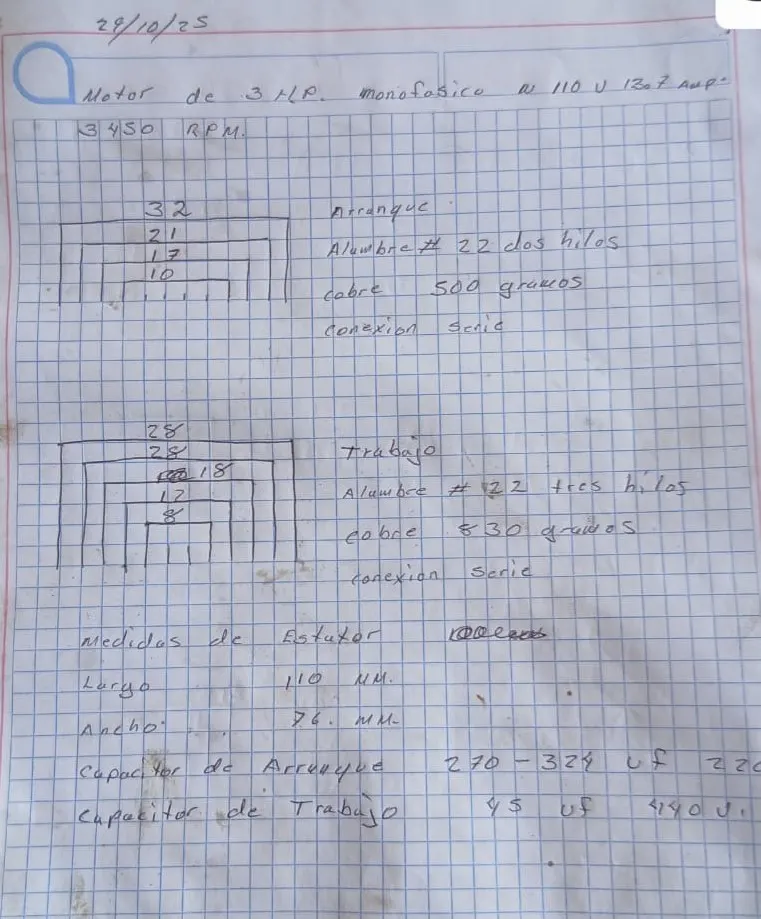 29/10/25
Motor de 3 H.P. monofasico ~ 110 V 13.7 Amp.
3450 RPM.
32
21
17
10
Arranque
Alambre # 22 dos hilos
cobre 500 gramos
conexion serie
28
28
18
12
8
Trabajo
Alambre # 22 tres hilos
cobre 830 gramos
conexion serie
Medidas de Estator
Largo 110 MM.
Ancho 76. MM.
Capacitor de Arranque 270 - 324 uf 220
Capacitor de Trabajo 45 uf 440 V.